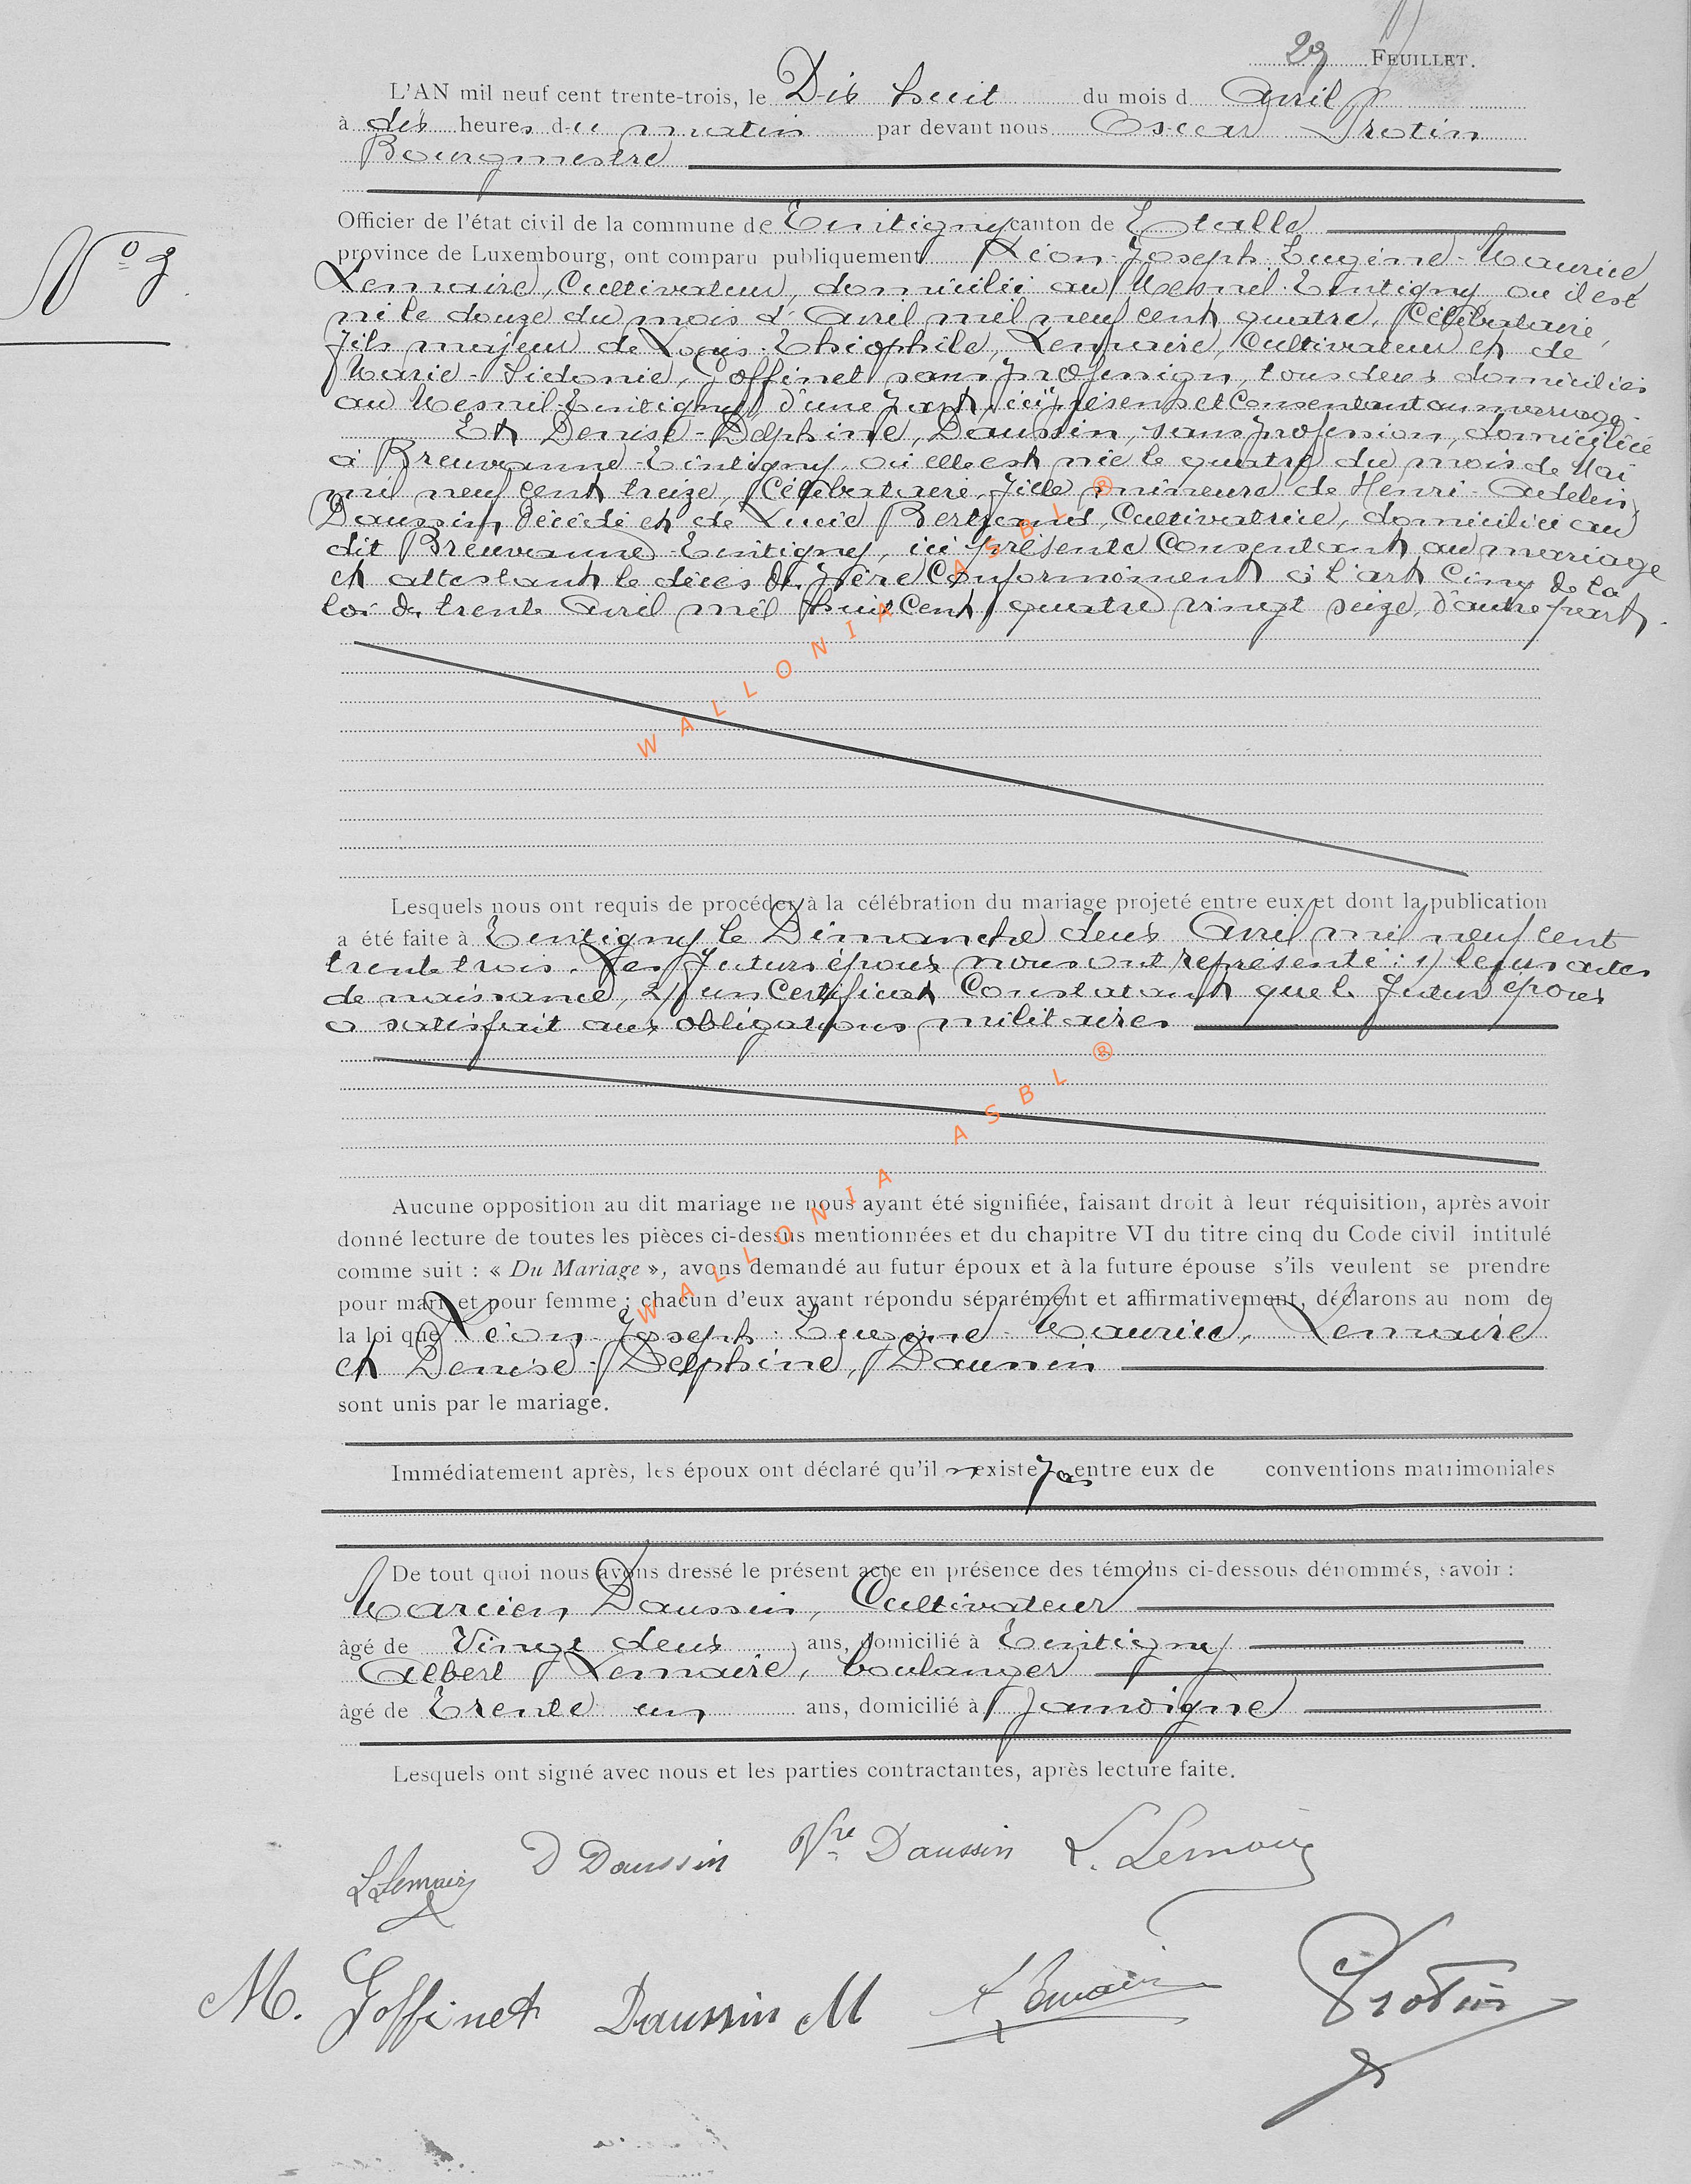 29 FEUILLET.
L'AN mil neuf cent trente-trois, le Dix huit du mois d Avril
à dix heures du matin par devant nous Oscar Protin
Bourgmestre
Officier de l'état civil de la commune de Tintigny canton de Etalle
N° 9
province de Luxembourg, ont comparu publiquement Léon-Joseph-Eugène-Maurice
Lemaire, Cultivateur, domicilié au Mesnil-Tintigny ou il est
né le douze du mois d'Avril mil neuf cent quatre, Célibataire,
fils majeur de Louis-Théophile, Lemaire, Cultivateur et de
Marie-Sidonie, Goffinet sans profession, tous deux domiciliés
au Mesnil-Tintigny d'une part, ici présents et Consentant au mariage.
Et Denise-Delphine, Daussin, sans profession, domiciliée
à Breuvanne-Tintigny, où elle est née le quatre du mois de Mai
mil neuf cent treize, Célibataire, fille mineure de Henri-Adelin,
Daussin, décédé et de Lucie Bertrand, Cultivatrice, domiciliée au
dit Breuvanne Tintigny, ici présente Consentant au mariage
et attestant le décès du père Conformément à l'art Cinq de la
loi du trente Avril mil huit Cent quatre vingt seize, d'autre part.
WALLONIA ASBL ®
Lesquels nous ont requis de procéder à la célébration du mariage projeté entre eux et dont la publication
a été faite à Tintigny le Dimanche deux Avril mil neuf cent
trente trois. Les futurs époux nous ont représenté : 1) leurs actes
de naissance, 2) un Certificat Constatant que le futur époux
a satisfait aux obligations militaires
WALLONIA ASBL ®
Aucune opposition au dit mariage ne nous ayant été signifiée, faisant droit à leur réquisition, après avoir
donné lecture de toutes les pièces ci-dessus mentionnées et du chapitre VI du titre cinq du Code civil intitulé
comme suit : « Du Mariage », avons demandé au futur époux et à la future épouse s'ils veulent se prendre
pour mari et pour femme ; chacun d'eux ayant répondu séparément et affirmativement, déclarons au nom de
la loi que Léon-Joseph-Eugène-Maurice, Lemaire
et Denise-Delphine, Daussin
sont unis par le mariage.
Immédiatement après, les époux ont déclaré qu'il n'existe pas entre eux de conventions matrimoniales
De tout quoi nous avons dressé le présent acte en présence des témoins ci-dessous dénommés, savoir :
Marcien Daussin, Cultivateur
âgé de Vingt deux ans, domicilié à Tintigny
Albert Lemaire, boulanger
âgé de Trente un ans, domicilié à Jamoigne
Lesquels ont signé avec nous et les parties contractantes, après lecture faite.
L Lemaire D Daussin Vve Daussin L. Lemaire
M. Goffinet Daussin M A Lemaire Protin